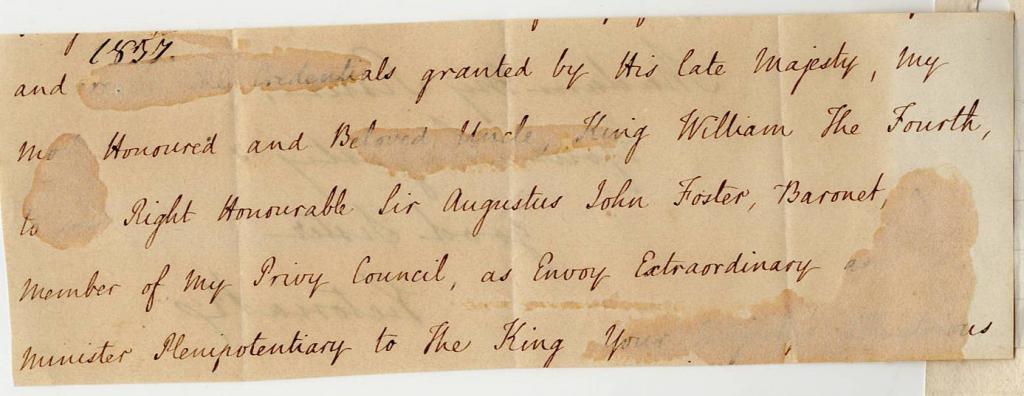 1837.
and credentials granted by His late Majesty, My
Most Honoured and Beloved Uncle, King William The Fourth,
to Right Honourable Sir Augustus John Foster, Baronet,
Member of My Privy Council, as Envoy Extraordinary
Minister Plenipotentiary to The King Your